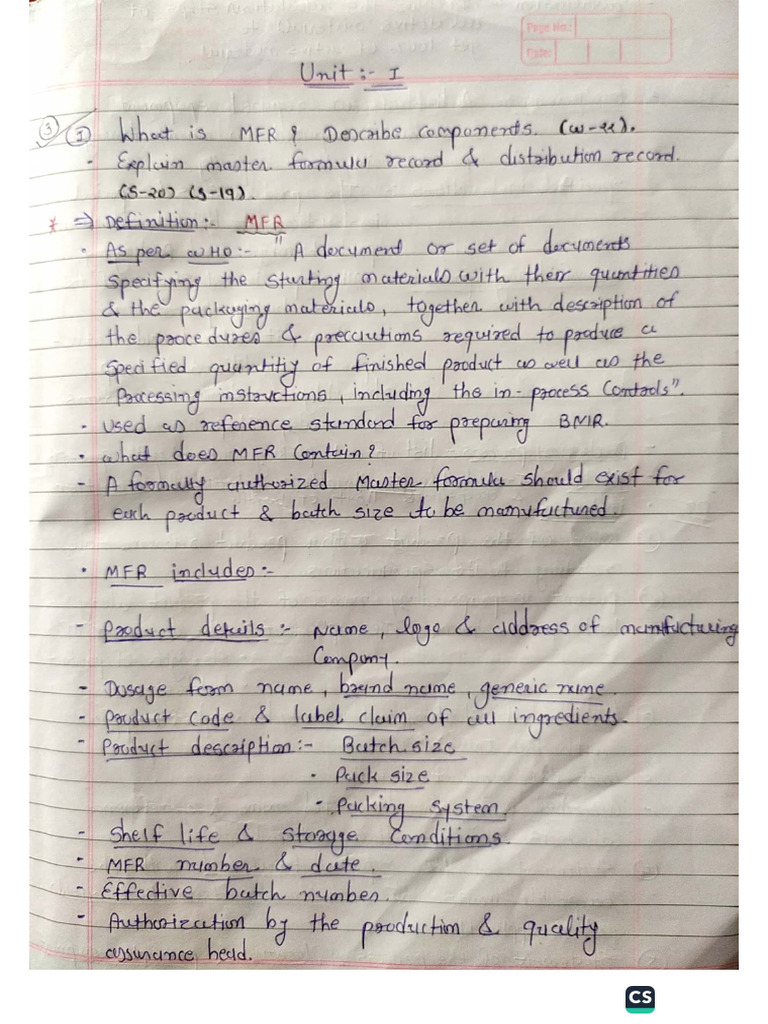 Page No.:
Date:
Unit :- I
3 I What is MFR & Describe components. (W-22).
- Explain master formula record & distribution record.
(S-20) (S-19).
* ⇒ Definition:- MFR
• As per WHO:- "A document or set of documents
specifying the starting materials with their quantities
& the packaging materials, together with description of
the procedures & precautions required to produce a
specified quantitiy of finished product as well as the
Processing instructions, including the in-process Controls".
• Used as reference standard for preparing BMR.
• What does MFR Contain?
- A formally authorized Master formula should exist for
each product & batch size to be manufactured.
• MFR includes:-
- Product details :- Name, logo & address of manufacturing
Company.
- Dosage form name, brand name, generic name.
- Product Code & label claim of all ingredients.
- Product description:- Batch size
• Pack size
• Packing System
- Shelf life & Storage Conditions.
- MFR number & date.
- Effective batch number.
- Authorization by the production & quality
assurance head.
CS